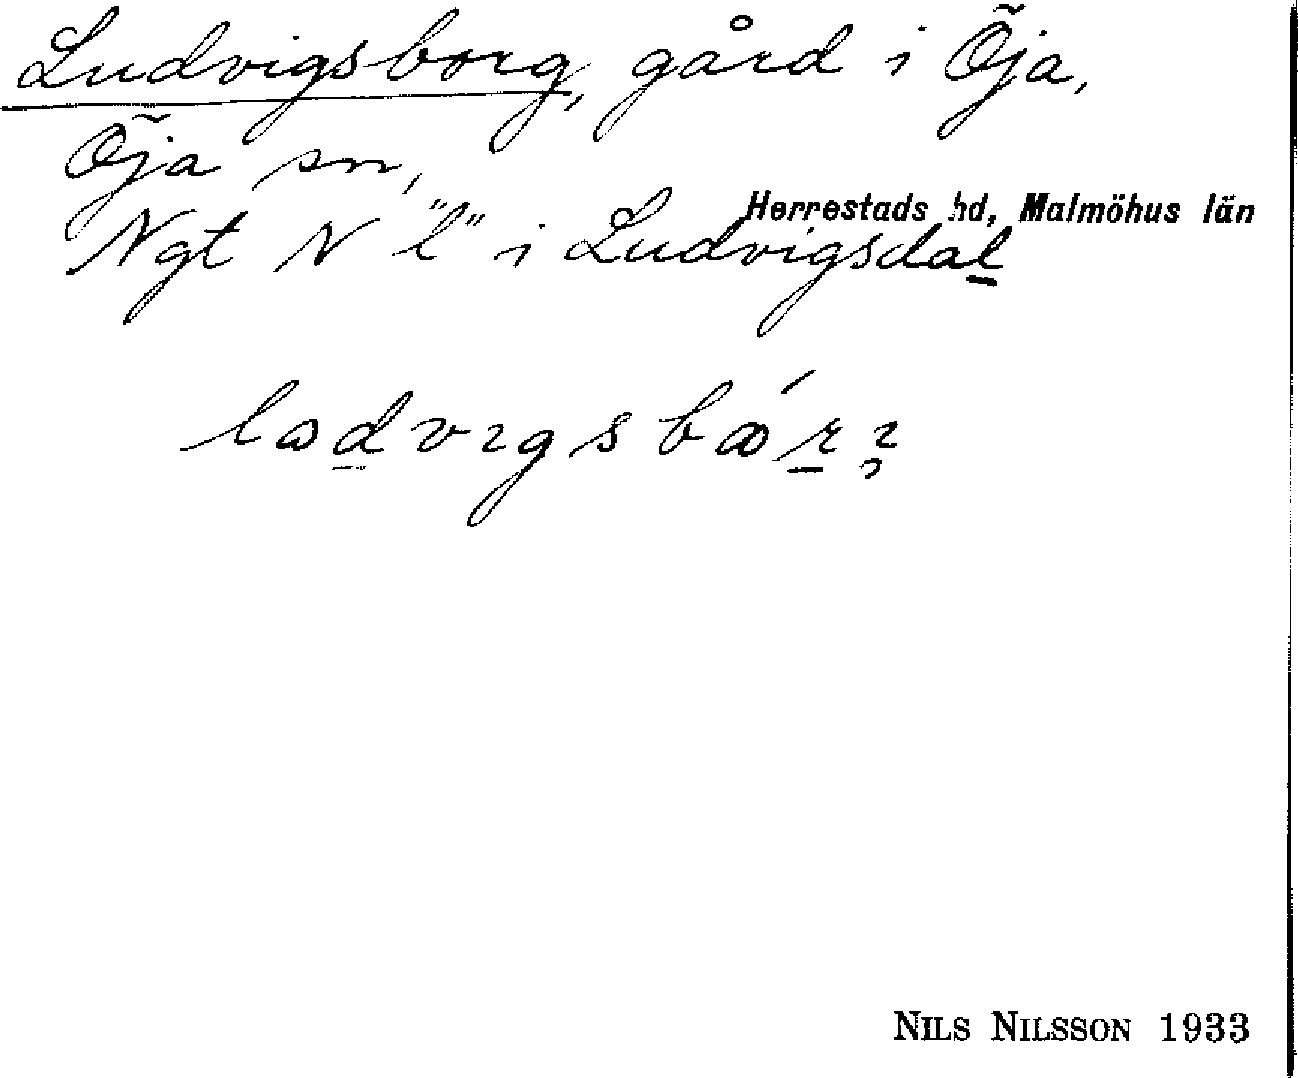 Ludvigsborg, gård i Öja,
Öja sn,
Herrestads hd, Malmöhus län
Ngt N "l" i Ludvigsdal
NILS NILSSON 1933